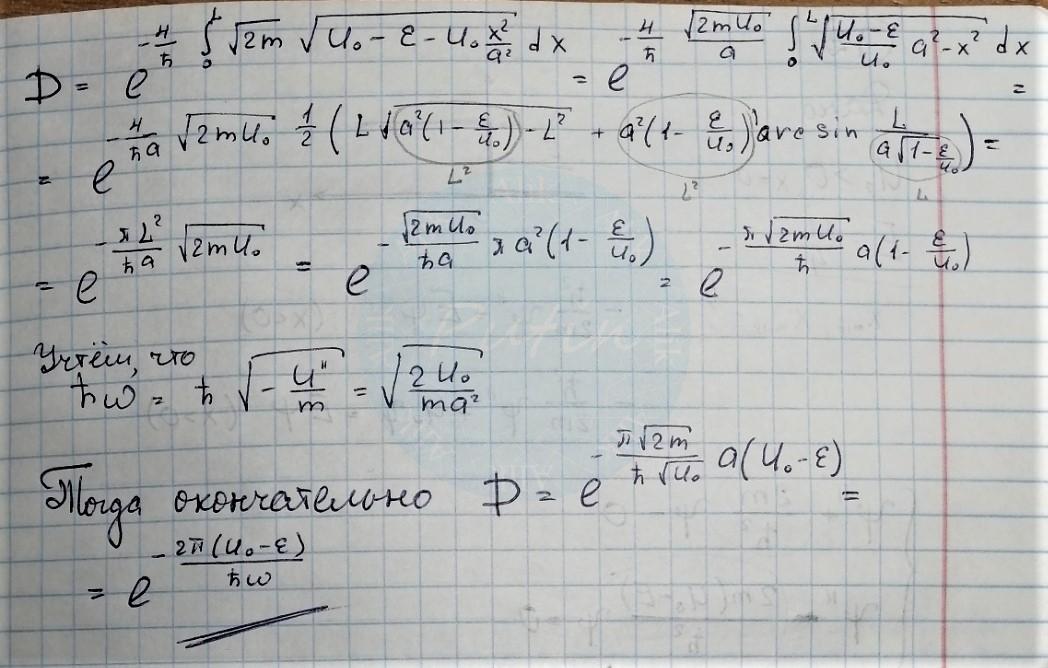 D = e^{-\frac{4}{ħ} \int_0^L \sqrt{2m} \sqrt{U_0 - ε - U_0 \frac{x^2}{a^2}} dx} = e^{-\frac{4}{ħ} \frac{\sqrt{2mU_0}}{a} \int_0^L \sqrt{\frac{U_0-ε}{U_0} a^2 - x^2} dx} =
= e^{-\frac{4}{ħa} \sqrt{2mU_0} \frac{1}{2} (L \sqrt{a^2(1-\frac{ε}{U_0}) - L^2} + a^2(1-\frac{ε}{U_0}) arc sin \frac{L}{a\sqrt{1-\frac{ε}{U_0}}})} =
L^2 L^2 L
= e^{-\frac{πL^2}{ħa} \sqrt{2mU_0}} = e^{-\frac{\sqrt{2mU_0}}{ħa} πa^2(1-\frac{ε}{U_0})} = e^{-\frac{π\sqrt{2mU_0}}{ħ} a(1-\frac{ε}{U_0})}
Учтём, что
ħω = ħ \sqrt{-\frac{U''}{m}} = \sqrt{\frac{2U_0}{ma^2}}
Тогда окончательно D = e^{-\frac{π\sqrt{2m}}{ħ\sqrt{U_0}} a(U_0-ε)} =
= e^{-\frac{2π(U_0-ε)}{ħω}}